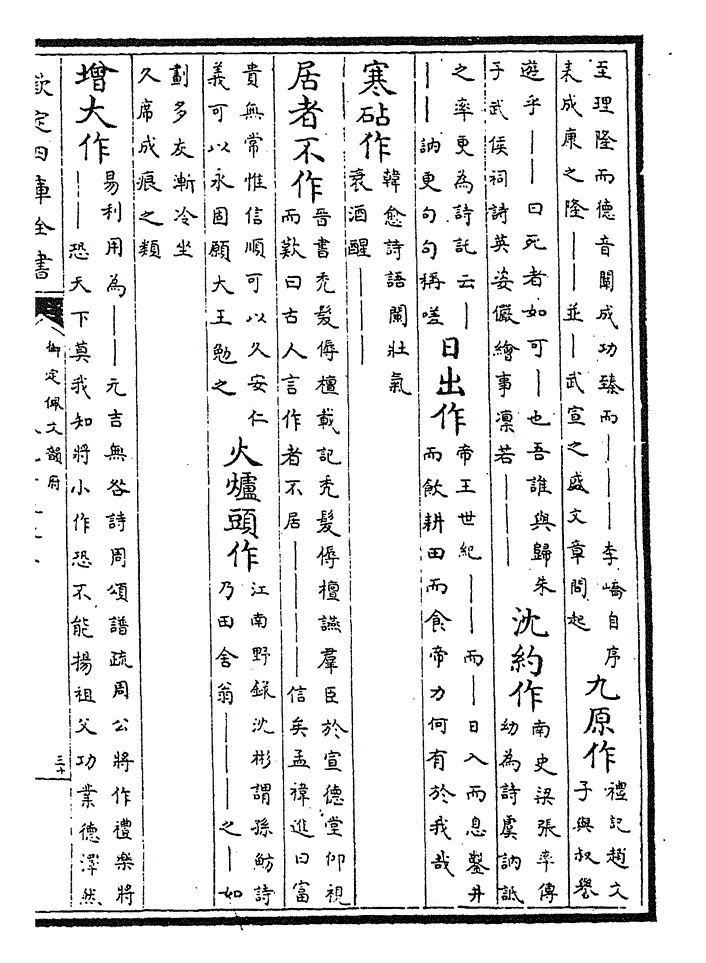 至理隆而德音闡成功臻而｜｜｜李嶠自序
來成康之隆｜｜並｜武宣之盛文章間起
九原作
禮記趙文
子與叔譽
遊乎｜｜曰死者如可｜也吾誰與歸朱
子武侯祠詩英姿儼繪事凜若｜｜｜
沈約作
南史梁張率傳
幼為詩虞訥詆
之率更為詩託云｜
｜｜訥更句句稱嗟
日出作
帝王世紀｜｜而｜日入而息鑿井
而飲耕田而食帝力何有於我哉
寒砧作
韓愈詩語闌壯氣
衰酒醒｜｜｜
居者不作
晉書禿髮傉檀載記禿髮傉檀讌羣臣於宣德堂仰視
而歎曰古人言作者不居｜｜｜｜信矣孟禕進曰富
貴無常惟信順可以久安仁
義可以永固願大王勉之
火爐頭作
江南野錄沈彬謂孫魴詩
乃田舍翁｜｜｜之｜如
劃多灰漸冷坐
久席成痕之類
增大作
易利用為｜｜元吉無咎詩周頌譜疏周公將作禮樂將
｜｜恐天下莫我知將小作恐不能揚祖父功業德澤然
欽定四庫全書
御定佩文韻府
三十